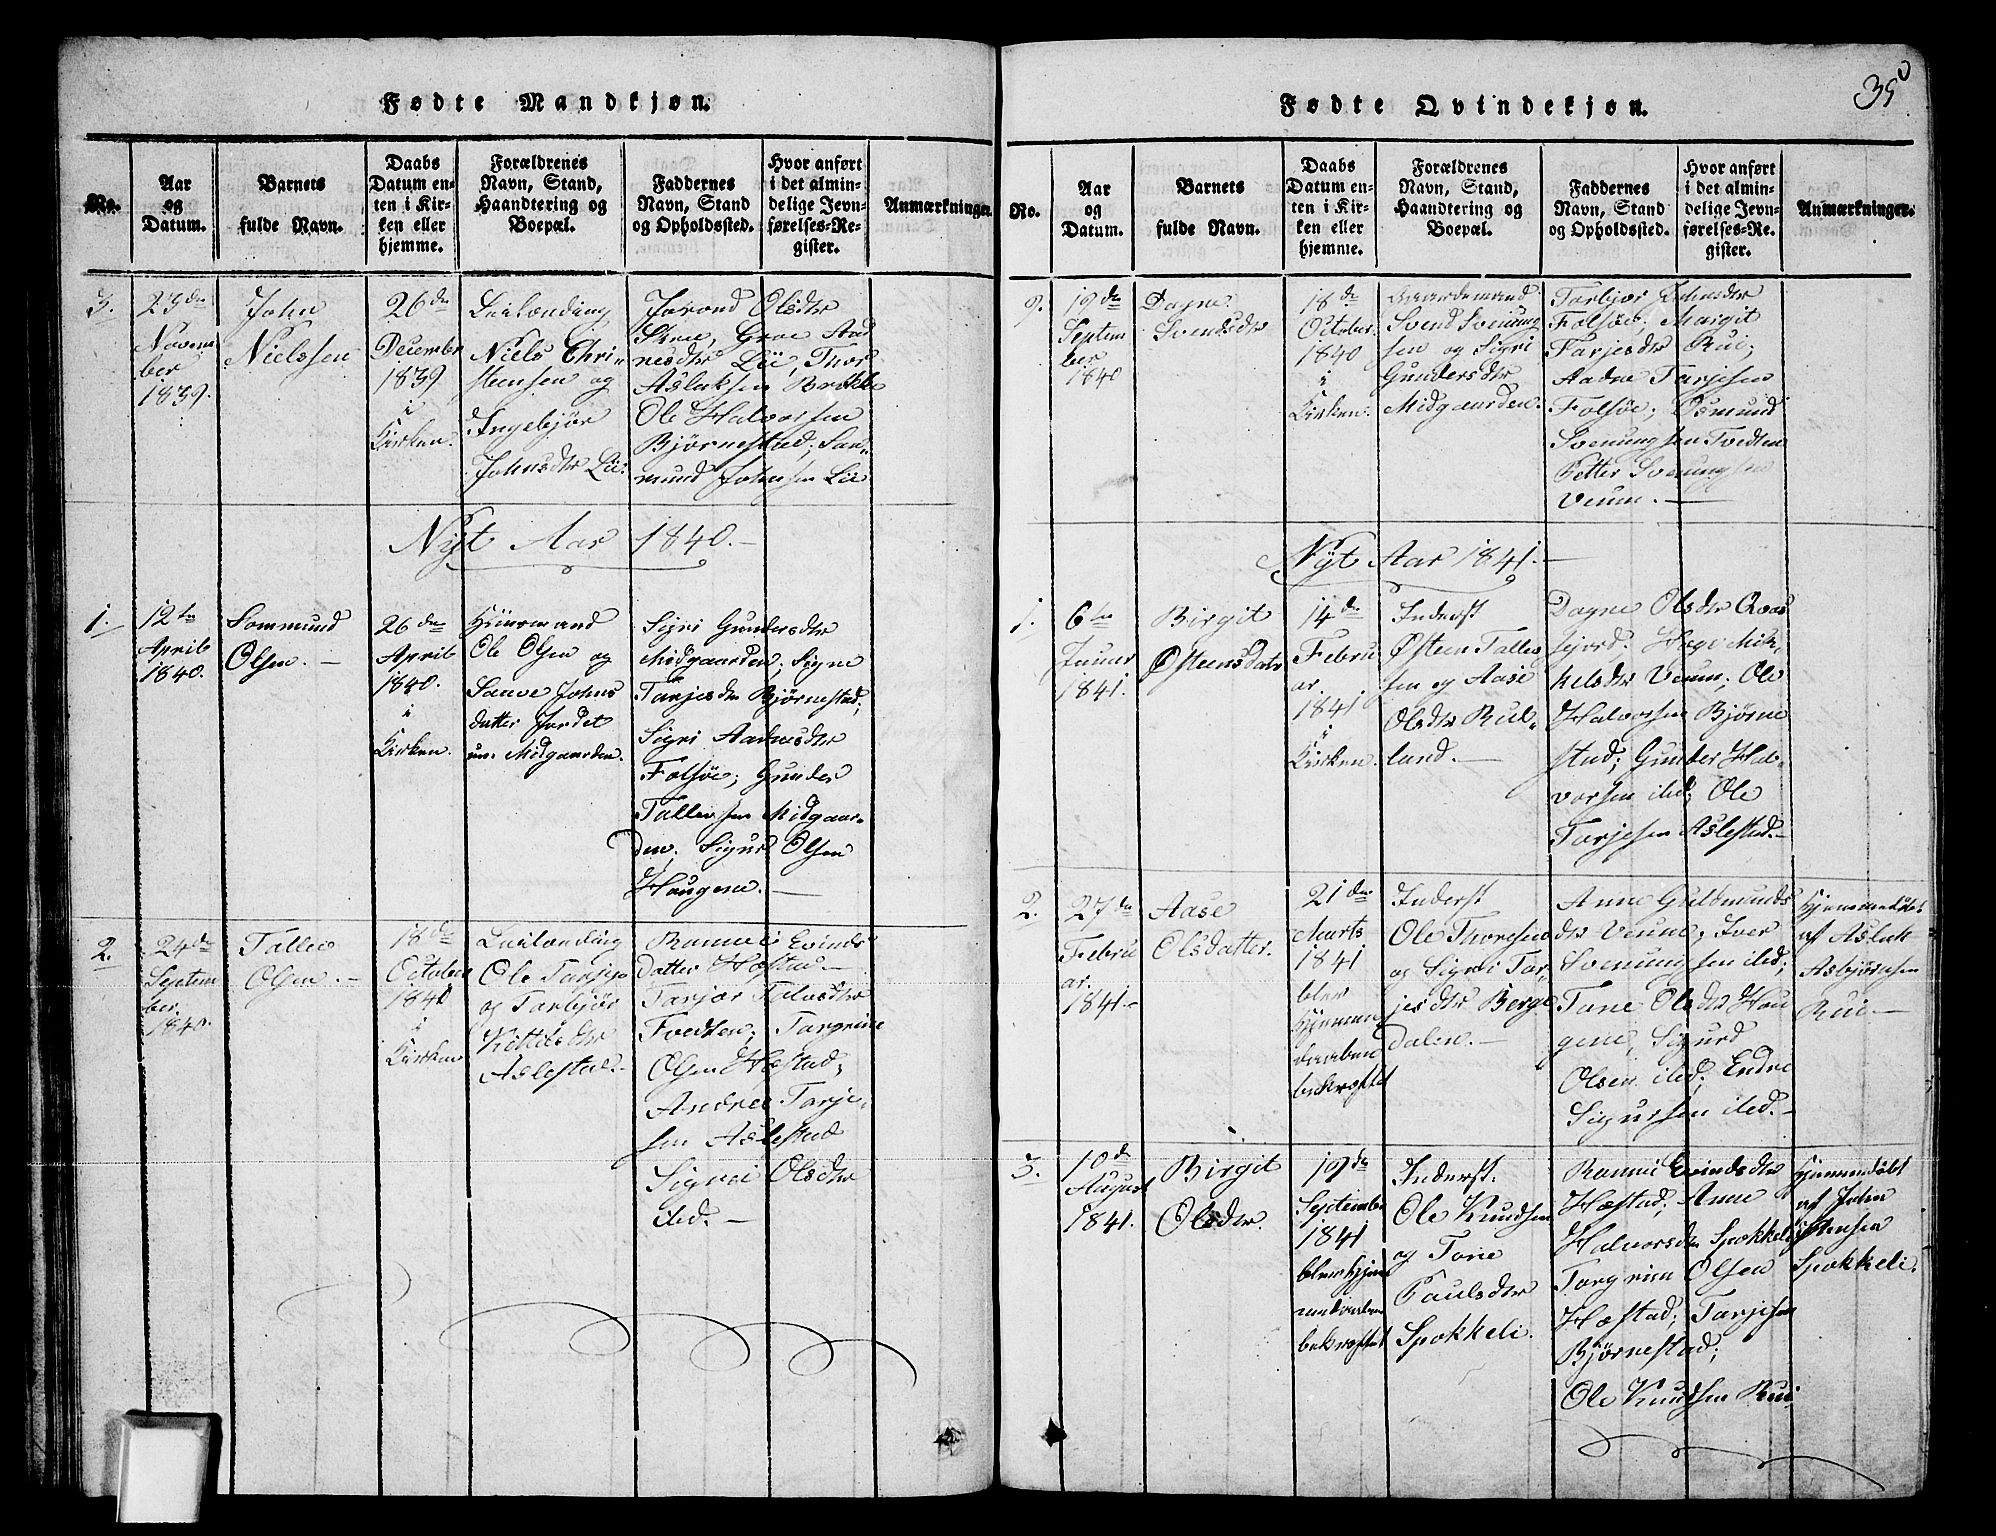 Fødte Mandkjøn.
No.
Aar
og
Datum.
Barnets
fulde Navn.
Daabs
Datum en-
ten i Kir-
ken eller
hjemme.
Forældrenes
Navn, Stand,
Haandtering og
Boepæl.
Faddernes
Navn, Stand
og Opholdssted.
Hvor anført
i det almin-
delige Jevn-
førelses-Re-
gister.
Anmærkninger.
3.
23de
Novem
ber
1839.
John
Nielssen
26de
December
1839
i
Kirken.
Leilænding
Niels Chri-
stensen og
Ingebjør
Johnsdtr Lii.
Jorond Olsdtr
Skree, Groe Aad
nesdtr Lii, Thor
Asluksen Brekke
Ole Halvorsen
Bjørnestad; San-
mund Johnsen Lii
Nyt Aar 1840.
1.
12te
April
1840.
Sommund
Olsen.
26de
April
1840.
i
Kirken.
Huusmand
Ole Olsen og
Saave Johns
datter Jordet
un: Midgaarden.
Sigri Gundersdtr
Midgaarden; Signe
Tarjesdtr Bjørnestad;
Sigri Aadnesdtr
Folsöe; Gunder
Tallevsen Midgaar-
den. Sigur Olsen
Haugene.
2.
24de
Septem
ber.
1840.
Tallev
Olsen.
18de
October
1840
i
Kirken
Leilænding
Ole Tarjes
og Torbjør
Kittilsdtr
Aslestad.
Ramvei Evinds
datter Hæstad
Tarjor Talvsdtr
Tvedten; Torgrim
Olsen Hæstad;
Andres Tarje-
sen Aslestad
Sigrei Olsdtr
ibid.
Fødte Qvindekjøn.
35
No.
Aar
og
Datum.
Barnets
fulde Navn.
Daabs
Datum en-
ten i Kir-
ken eller
hjemme.
Forældrenes
Navn, Stand,
Haandtering og
Boepæl.
Faddernes
Navn, Stand
og Opholdssted.
Hvor anført
i det almin-
delige Jevn-
førelses-Re-
gister.
Anmærkninger.
9.
19de
Septem
ber
1840
Dagne
Svensdtr
18de
October.
1840
i
Kirken.
Gaardemand
Svend Svenung
sen og Sigri
Gundersdtr
Midgaarden.
Torbjor Johnsdtr
Folsöe, Margit
Tarjesdtr Rui;
Aadne Tarjesen
Folsöe; Osmund
Svenungsen Tvedten
Petter Svenungsen
Veum.
Nyt Aar 1841.
1.
6te
Januar
1841.
Birgit
Østensdatr
14de
Febru
ar.
1841
i
Kirken.
Inderst
Østen Tallev
sen og Aase
Olsdtr Rul-
land.
Dagne Olsdtr Qvas
fjord. Hege Mik-
kelsdtr Veum; Ole
Halvorsen Bjørne
stad; Gunder Hal-
vorsen ibid; Ole
Tarjesen Aslestad.
2.
27de
Febru
ar.
1841.
Aase
Olsdatter.
21de
Marts
1841
blev
Hjemme
daaben
bekræftet
Inderst
Ole Thoresen
og Sigri Tar-
jesdtr Berge
dalen.
Anne Guldmunds
dtr Veum; Iver
Svenungsen ibid;
Tone Olsdtr Hau
gene, Sigurd
Olsen ibid; Endre
Sigursen ibid.
Hjemmedöbt
af Asluk
Asbjørnsen
Rui.
3.
10de
August
1841.
Birgit
Olsdtr.
19de
September
1841
blev Hjem
medaaben
bekræftet
Inderst.
Ole Knudsen
og Tone
Paulsdtr
Spokkeli.
Ramvei Evindsdtr
Hæstad; Anne
Halvorsdtr Spokkeli
Torgrim Olsen
Hæstad; Tarjesen
Bjørnestad;
Ole Knudsen Rui,
Hjemmedøbt
af John
Østensen
Spokkeli.